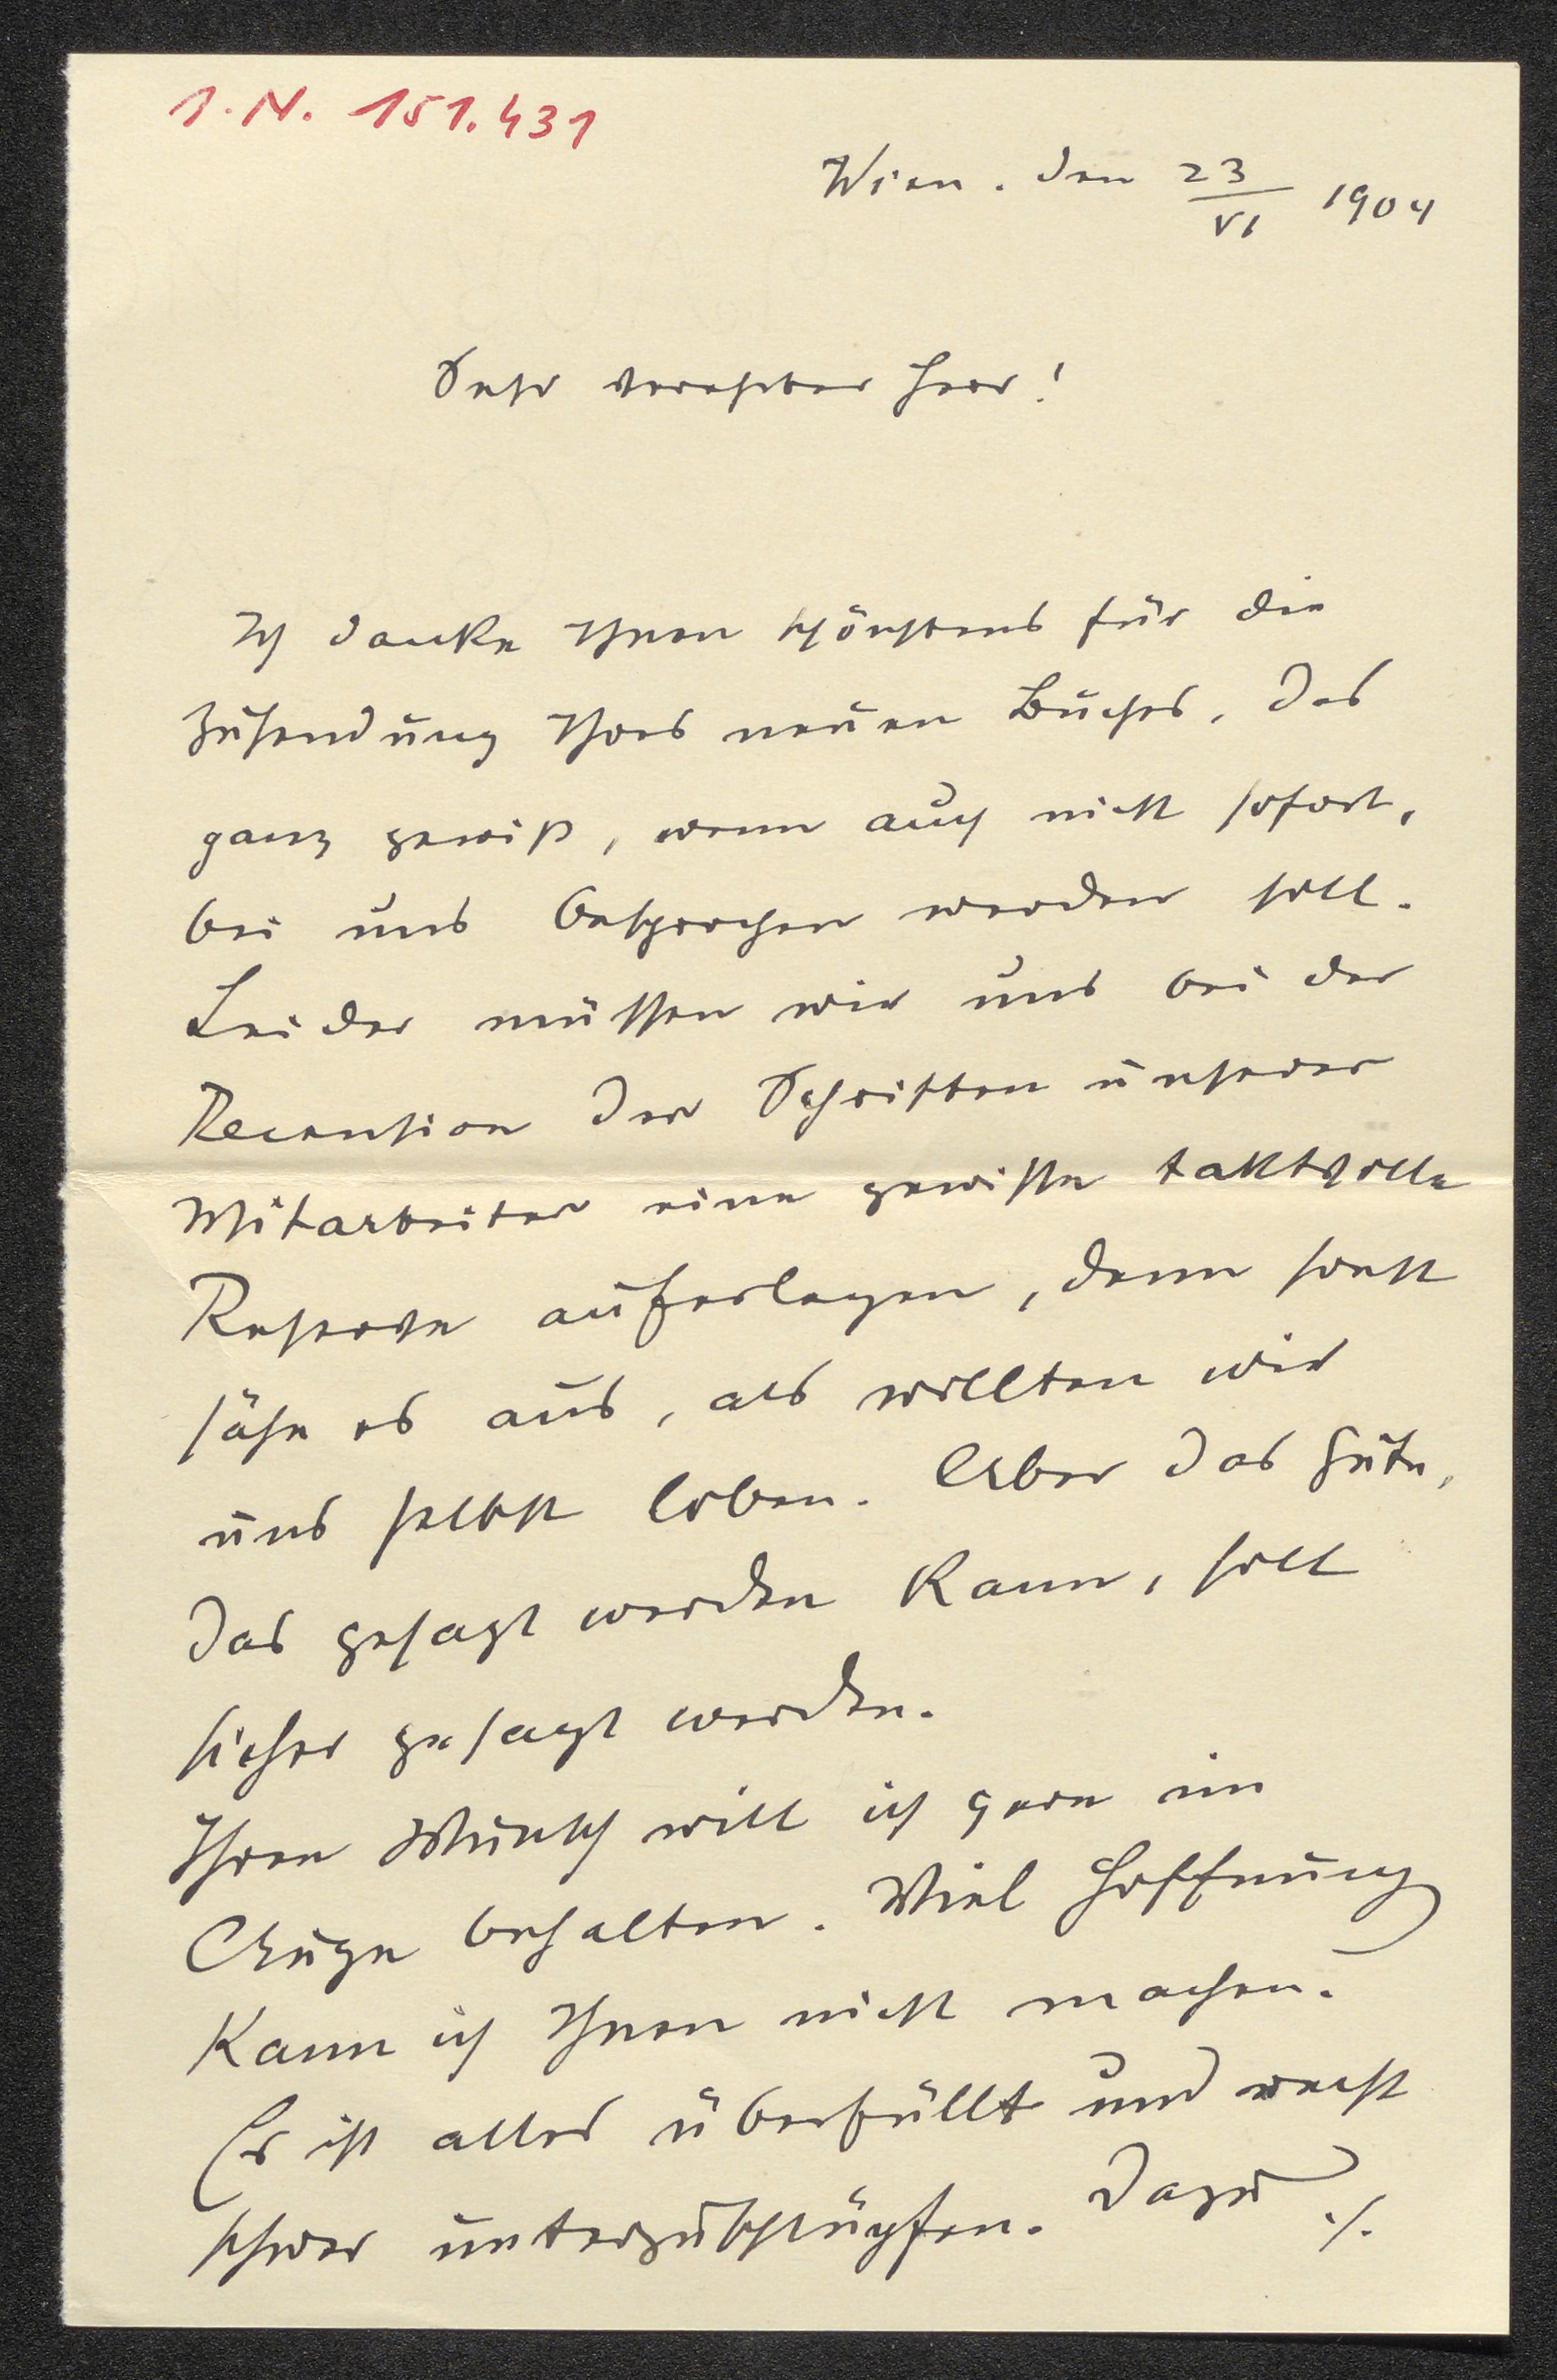 I.N. 151.431
Wien. den 23/VI 1904
Sehr verehrter Herr!
Ich danke Ihnen schönstens für die
Zusendung Ihres neuen Buches, das
ganz gewiß, wenn auch nicht sofort,
bei uns besprochen werden soll.
Leider müssen wir uns bei der
Recension der Schriften unserer
Mitarbeiter eine gewisse taktvolle
Reserve auferlegen, denn sonst
sähe es aus, als wollten wir
uns selbst loben. Aber das Gute,
das gesagt werden kann, soll
sicher gesagt werden.
Ihren Wunsch will ich gern im
Auge behalten. Viel Hoffnung
kann ich Ihnen nicht machen.
Es ist alles überfüllt und recht
schwer unterzuschlüpfen. Dazu ./.